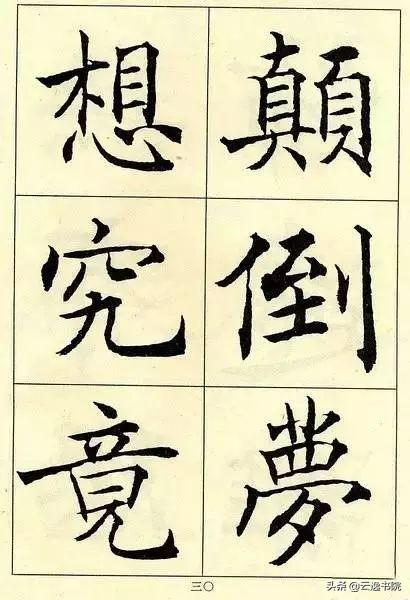 顛倒夢
想究竟
三〇
头条 @云逸书院